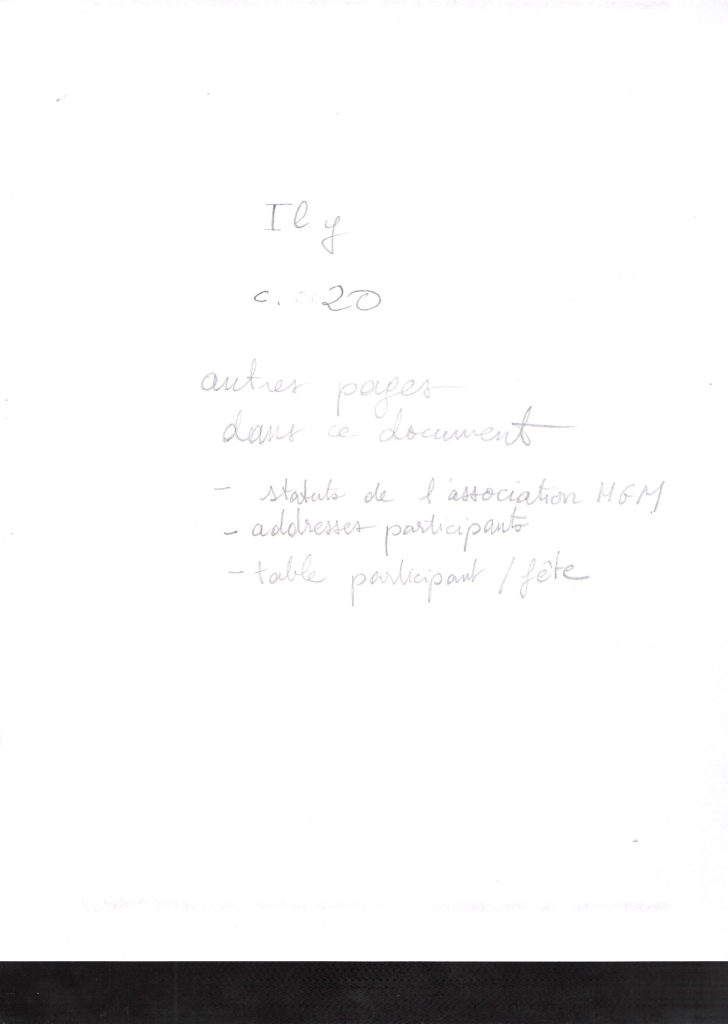 Il y
c. 20
autres pages
dans ce document
- statuts de l'association MGM
- addresses participants
- table participant / fête